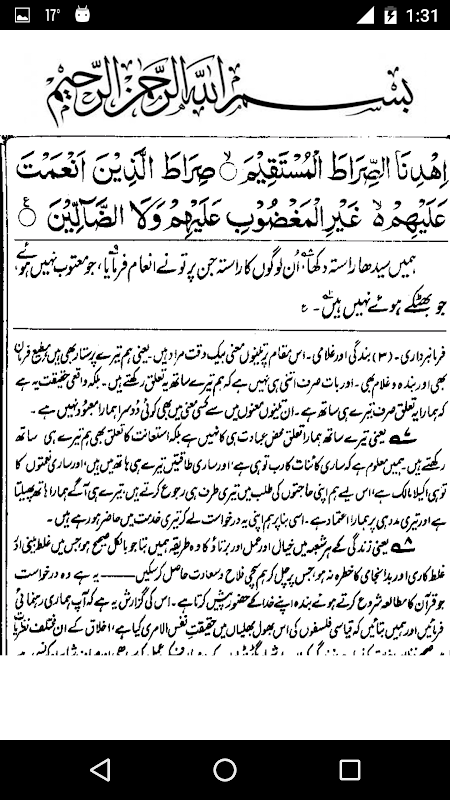 17°
1:31
بسم الله الرحمن الرحيم
اِهْدِنَا الصِّرَاطَ الْمُسْتَقِيْمَ ۙ صِرَاطَ الَّذِيْنَ اَنْعَمْتَ
عَلَيْهِمْ ۙ غَيْرِ الْمَغْضُوْبِ عَلَيْهِمْ وَلَا الضَّآلِّيْنَ
ہمیں سیدھا راستہ دکھا، اُن لوگوں کا راستہ جن پر تو نے انعام فرمایا، جو معتوب نہیں ہوئے،
جو بھٹکے ہوئے نہیں ہیں۔
فرمانبرداری۔ (۳) بندگی اور غلامی۔ اس مقام پر تینوں معنی بیک وقت مراد ہیں۔ یعنی ہم تیرے پرستار بھی ہیں، مطیع فرمان
بھی اور بندہ و غلام بھی۔ اور بات صرف اتنی ہی نہیں ہے کہ ہم تیرے ساتھ یہ تعلق رکھتے ہیں۔ بلکہ واقعی حقیقت یہ ہے
کہ ہمارا یہ تعلق صرف تیرے ہی ساتھ ہے۔ ان تینوں معنوں میں سے کسی معنی میں بھی کوئی دُوسرا ہمارا معبود نہیں ہے۔
یعنی تیرے ساتھ ہمارا تعلق محض عبادت ہی کا نہیں ہے بلکہ استعانت کا تعلق بھی ہم تیرے ہی ساتھ
رکھتے ہیں۔ ہمیں معلوم ہے کہ ساری کائنات کا رب تو ہی ہے، اور ساری طاقتیں تیرے ہی ہاتھ میں ہیں، اور ساری نعمتوں کا
تو ہی اکیلا مالک ہے، اس لیے ہم اپنی حاجتوں کی طلب میں تیری طرف ہی رجوع کرتے ہیں، تیرے ہی آگے ہمارا ہاتھ پھیلتا
ہے اور تیری مدد ہی پر ہمارا اعتماد ہے۔ اسی بنا پر ہم اپنی یہ درخواست لے کر تیری خدمت میں حاضر ہو رہے ہیں۔
یعنی زندگی کے ہر شعبہ میں خیال اور عمل اور برتاؤ کا وہ طریقہ ہمیں بتا جو بالکل صحیح ہو، جس میں غلط بینی اور
غلط کاری اور بد انجامی کا خطرہ نہ ہو، جس پر چل کر ہم سچی فلاح و سعادت حاصل کر سکیں۔ —— یہ ہے وہ درخواست
جو قرآن کا مطالعہ شروع کرتے ہوئے بندہ اپنے خدا کے حضور پیش کرتا ہے۔ اس کی گزارش یہ ہے کہ آپ ہماری رہنمائی
فرمائیں اور ہمیں بتائیں کہ قیاسی فلسفوں کی اس بھول بھلیاں میں حقیقتِ نفس الامری کیا ہے، اخلاق کے ان مختلف نظریات